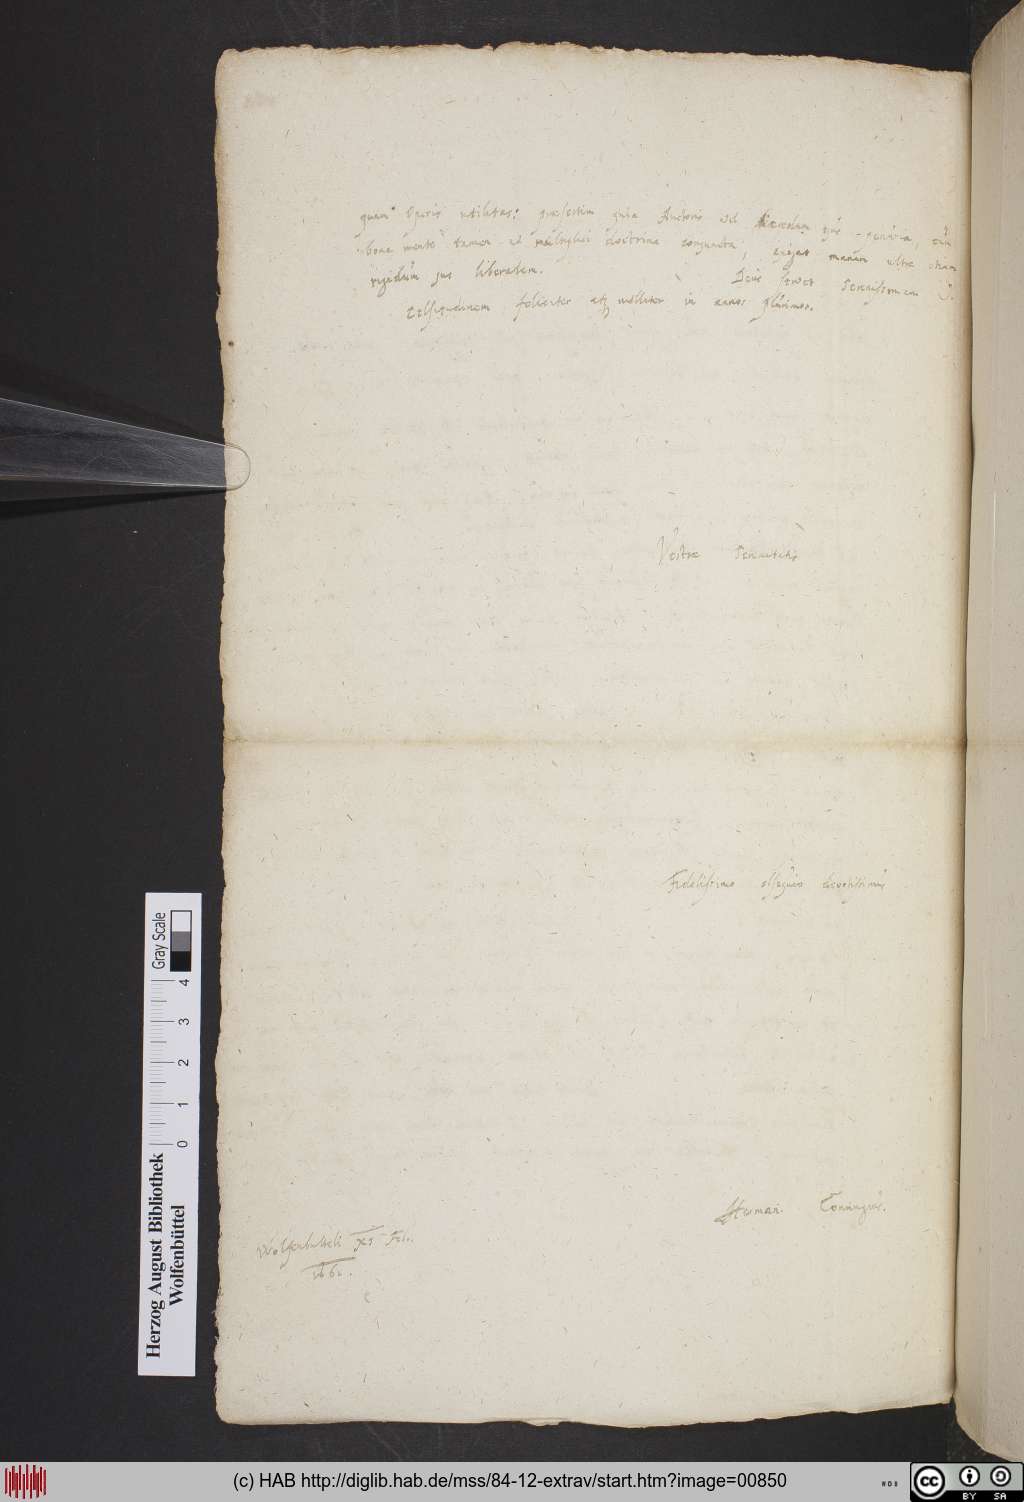 quam Operis utilitas: præsertim quia Auctoris vel hæredum ejus penuria, cum
bona mente tamen et multiplici doctrina conjuncta, exigat manum ultra etiam
rigidum jus liberalem. Deus servet Serenissimam V.
Celsitudinem feliciter atq molliter in annos plurimos.
Vestræ Serenitatis
Fidelissimo obsequio devotissimus
Herman. Conringius.
Wolfenbutteli XI
Herzog August Bibliothek
Wolfenbüttel
0 1 2 3 4
Gray Scale
(c) HAB http://diglib.hab.de/mss/84-12-extrav/start.htm?image=00850
cc BY SA